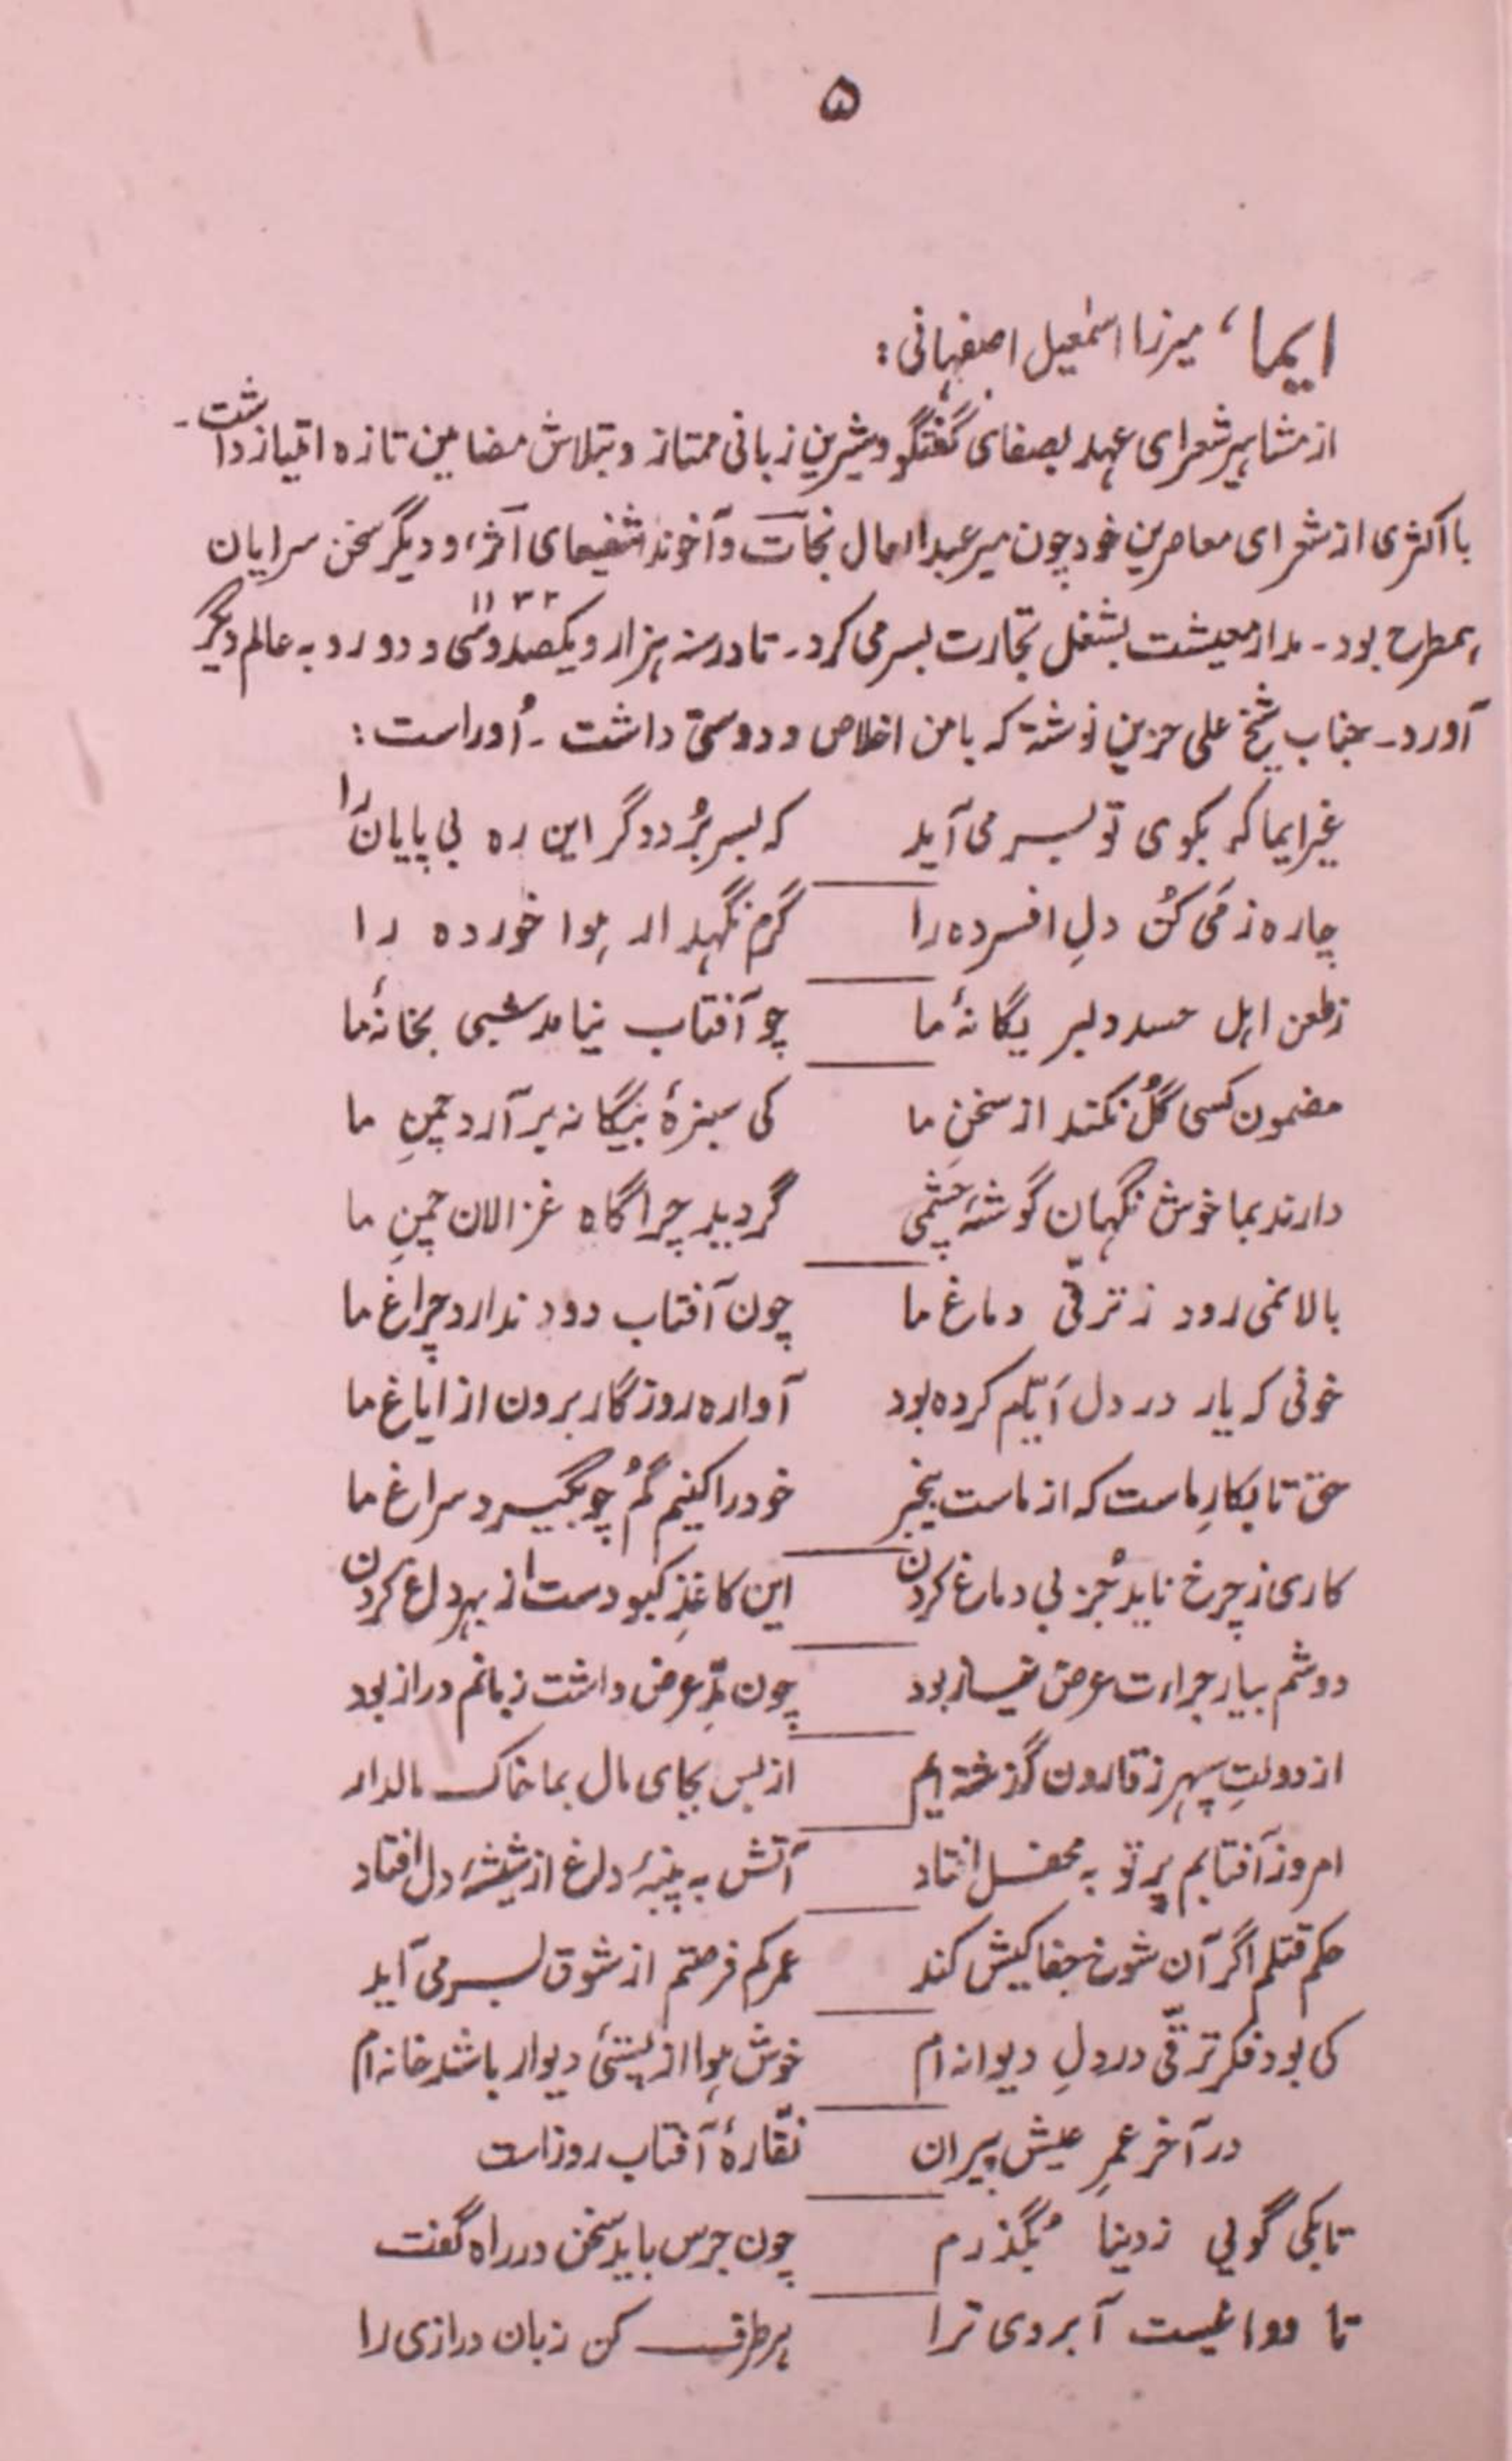 ۵
ایما، میرزا اسمٰعیل اصفهانی:
از مشاہیر شعرای عہد بصفای گفتگو و شیرین زبانی ممتاز و بتلاش مضامین تازه امتیاز داشت۔
با اکثری از شعرای معاصرین خود چون میر عبدالعال نجات و آخوند شفیعای آثر، و دیگر سخن سرایان
ہمطرح بود۔ مدار معیشت بشغل تجارت بسر می کرد۔ تا در سنہ ہزار و یکصد و سی و دو ۱۱۳۲ رو بہ عالم دیگر
آورد۔ جناب شیخ علی حزین نوشتہ کہ با من اخلاص و دوستی داشت۔ اُوراست:
غیر ایما کہ بکوی تو بسر می آید کہ بسر بُرد دگر این ره بی پایان را
چاره ز مَی کُن دلِ افسرده را گرم نگہدار ہوا خورده را
ز طعن اہل حسد دلبر یگانۂ ما چو آفتاب نیامد شبی بخانۂ ما
مضمون کسی گُل نکند از سخنِ ما کی سبزۂ بیگانہ بر آرد چمنِ ما
دارند بما خوش نگہان گوشۂ چشمی گردید چراگاه غزالان چمنِ ما
بالا نمی رود ز ترقّی دماغ ما چون آفتاب دود ندارد چراغ ما
خونی کہ یار در دل ایّام کرده بود آواره روزگار برون از ایاغ ما
حق تا بکارِ ماست کہ از ماست بیخبر خود را کنیم گُم چو بگیرد سراغ ما
کاری ز چرخ ناید جُز بی دماغ کردن این کاغذِ کبود دست از بہر داغ کردن
دوشم بیار جراءت عرض نیاز بود چون مدِّ عرض داشت زبانم دراز بود
از دولتِ سپہر ز قارون گذشتہ ایم از بس بجای مال بما خاک مالدار
امروز آفتابم پرتو بہ محفل افتاد آتش بہ پنبۂ داغ از شیشۂ دل افتاد
حکم قتلم اگر آن شوخ جفا کیش کند عمر کم فرصتم از شوق بسر می آید
کی بود فکر ترقّی در دلِ دیوانہ ام خوش ہوا از پستیٔ دیوار باشد خانہ ام
در آخر عمرِ عیش پیران نقّارۂ آفتاب روز است
تا بکی گویی ز دنیا بُگذرم چون جرس باید سخن در راه گفت
تا آبروی ترا برطرف کن زبان درازی را